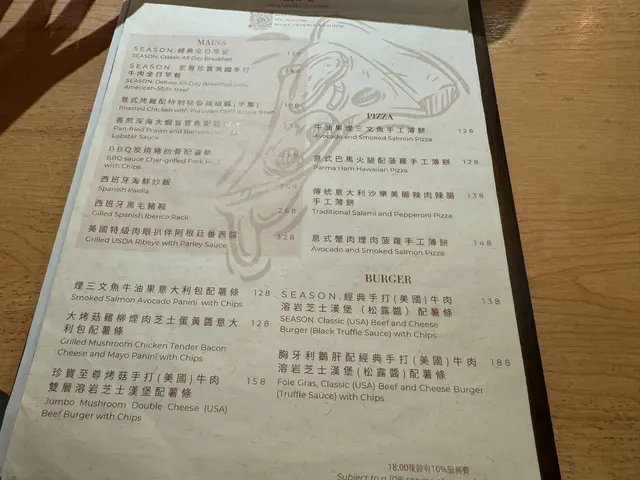 MAINS
SEASON.經典全日早餐 128
SEASON. Classic All-Day Breakfast
SEASON. 至尊珍寶美國手打
牛肉全日早餐
SEASON. Deluxe All-Day Breakfast with
American-Style Beef
意式烤雞配特制秘魯辣椒醬(半隻)
Roasted Chicken with Peruvian Chilli Sauce (Half)
Pan-fried Prawn and
Lobster Sauce
BBQ炭燒豬肋骨配薯條
BBQ sauce Char-grilled Pork
with Chips
西班牙海鮮炒飯
Spanish Paella
西班牙黑毛豬鞍 268
Gilled Spanish Iberico Rack
美國特級肉眼扒伴阿根廷番茜醬 328
Grilled USDA Ribeye with Parley Sauce
煙三文魚牛油果意大利包配薯條 128
Smoked Salmon Avocado Panini with Chips
大烤菇雞柳煙肉芝士蛋黃醬意大 128
利包配薯條
Grilled Mushroom Chicken Tender Bacon
Cheese and Mayo Panini with Chips
珍寶至尊烤菇手打(美國)牛肉 158
雙層溶岩芝士漢堡配薯條
Jumbo Mushroom Double Cheese (USA)
Beef Burger with Chips
PIZZA
牛油果煙三文魚手工薄餅 128
Avocado and Smoked Salmon Pizza
意式巴馬火腿配菠蘿手工薄餅 128
Parma Ham Hawaiian Pizza
傳統意大利沙樂美腸辣肉辣腸 138
手工薄餅
Traditional Salami and Pepperoni Pizza
意式蟹肉煙肉菠蘿手工薄餅 148
Avocado and Smoked Salmon Pizza
BURGER
SEASON.經典手打(美國)牛肉 138
溶岩芝士漢堡(松露醬)配薯條
SEASON. Classic (USA) Beef and Cheese
Burger (Black Truffle Sauce) with Chips
胸牙利鵝肝配經典手打(美國)牛肉 188
溶岩芝士漢堡(松露醬)配薯條
Foie Gras, Classic (USA) Beef and Cheese Burger
(Truffle Sauce) with Chips
18:00後設有10%服務費
Subject to a 10%